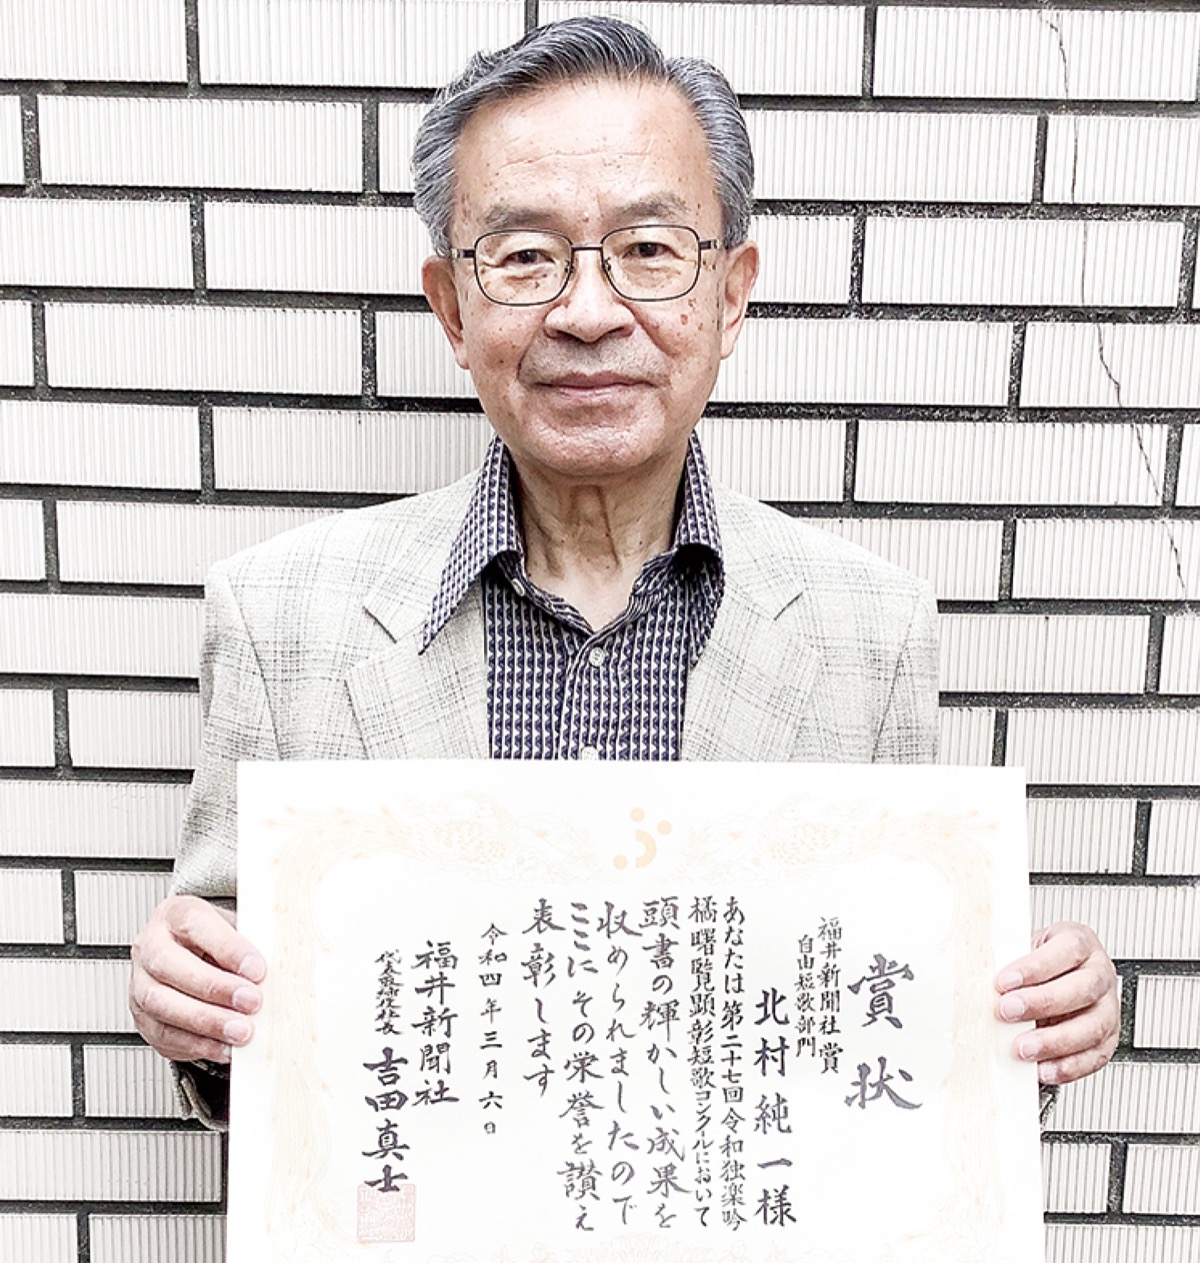 賞状
福井新聞社賞
自由短歌部門
北村純一様
あなたは第二十七回令和独楽吟
橘曙覧顕彰短歌コンクールにおいて
頭書の輝かしい成果を
収められましたので
ここにその栄誉を讃え
表彰します
令和四年三月六日
福井新聞社
代表取締役社長 吉田真士